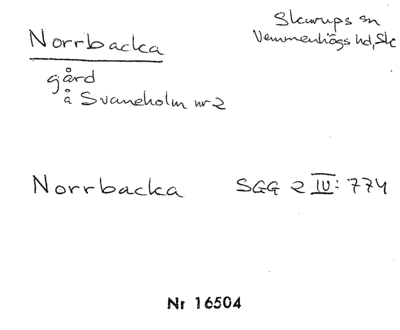 Norrbacka
Skurups sn
Vemmenhögs hd, Sk
gård
å Svaneholm nr 2
Norrbacka SGG 2 IV: 774
Nr 16504